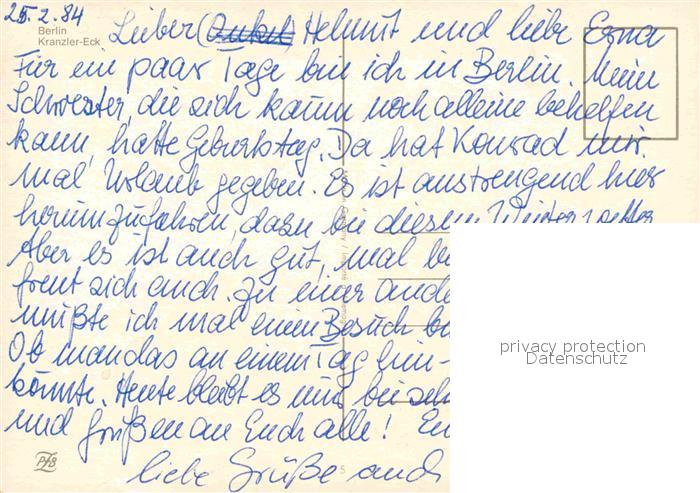 25.2.84
Berlin
Kranzler-Eck
Lieber (Onkel) Helmut und liebe Erna
Für ein paar Tage bin ich in Berlin. Mein
Schwester, die sich kaum noch alleine behelfen
kann, hatte Geburtstag. Da hat Konrad mir
mal Urlaub gegeben. Es ist anstrengend hier
herumzufahren, dazu bei diesem Winterwetter
Aber es ist auch gut, mal be
freut sich auch. Zu einer ande
müßte ich mal einen Besuch b
Ob man das an einem Tag hin-
könnte. Heute bleibt es nur bei
und Grüßen an Euch alle!
liebe Grüße auch
privacy protection
Datenschutz